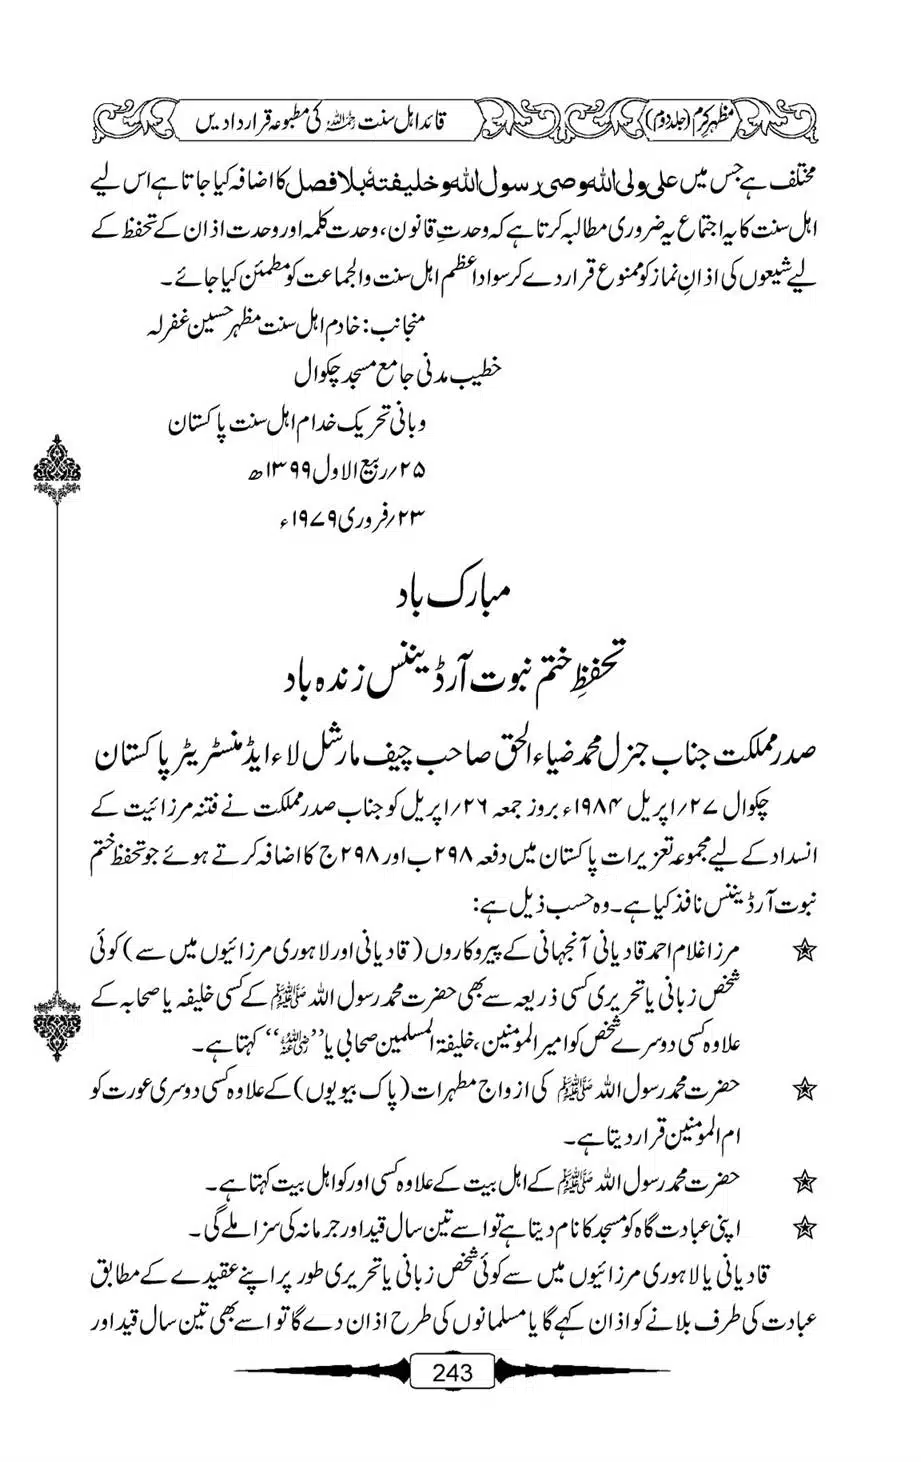 مظہرِ کرم (جلد دوم)
قائد اہل سنت رحمہ اللہ کی مطبوعہ قراردادیں
مختلف ہے جس میں علی ولی اللہ وصی رسول اللہ و خلیفتہٗ بلا فصل کا اضافہ کیا جاتا ہے اس لیے
اہل سنت کا یہ اجتماع یہ ضروری مطالبہ کرتا ہے کہ وحدتِ قانون، وحدت کلمہ اور وحدت اذان کے تحفظ کے
لیے شیعوں کی اذانِ نماز کو ممنوع قرار دے کر سواد اعظم اہل سنت والجماعت کو مطمئن کیا جائے۔
منجانب: خادم اہل سنت مظہر حسین غفرلہ
خطیب مدنی جامع مسجد چکوال
و بانی تحریک خدام اہل سنت پاکستان
۲۵؍ربیع الاول ۱۳۹۹ھ
۲۳؍فروری ۱۹۷۹ء
مبارک باد
تحفظِ ختم نبوت آرڈیننس زندہ باد
صدر مملکت جناب جنرل محمد ضیاء الحق صاحب چیف مارشل لاء ایڈمنسٹریٹر پاکستان
چکوال ۲۷؍اپریل ۱۹۸۴ء بروز جمعہ ۲۶؍اپریل کو جناب صدر مملکت نے فتنہ مرزائیت کے
انسداد کے لیے مجموعہ تعزیرات پاکستان میں دفعہ ۲۹۸ ب اور ۲۹۸ ج کا اضافہ کرتے ہوئے جو تحفظ ختم
نبوت آرڈیننس نافذ کیا ہے۔ وہ حسب ذیل ہے:
✯ مرزا غلام احمد قادیانی آنجہانی کے پیروکاروں (قادیانی اور لاہوری مرزائیوں میں سے) کوئی
شخص زبانی یا تحریری کسی ذریعہ سے بھی حضرت محمد رسول اللہ ﷺ کے کسی خلیفہ یا صحابہ کے
علاوہ کسی دوسرے شخص کو امیر المومنین، خلیفۃ المسلمین صحابی یا ’’رضی اللہ عنہ‘‘ کہتا ہے۔
✯ حضرت محمد رسول اللہ ﷺ کی ازواج مطہرات (پاک بیویوں) کے علاوہ کسی دوسری عورت کو
ام المومنین قرار دیتا ہے۔
✯ حضرت محمد رسول اللہ ﷺ کے اہل بیت کے علاوہ کسی اور کو اہل بیت کہتا ہے۔
✯ اپنی عبادت گاہ کو مسجد کا نام دیتا ہے تو اسے تین سال قید اور جرمانہ کی سزا ملے گی۔
قادیانی یا لاہوری مرزائیوں میں سے کوئی شخص زبانی یا تحریری طور پر اپنے عقیدے کے مطابق
عبادت کی طرف بلانے کو اذان کہے گا یا مسلمانوں کی طرح اذان دے گا تو اسے بھی تین سال قید اور
243